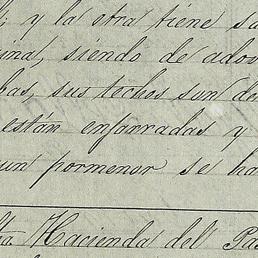 ; y la otra tiene sa
ina, siendo de ado
bas, sus techos son de
están enfarradas y
un pormenor se ha
ta Hacienda del Pa